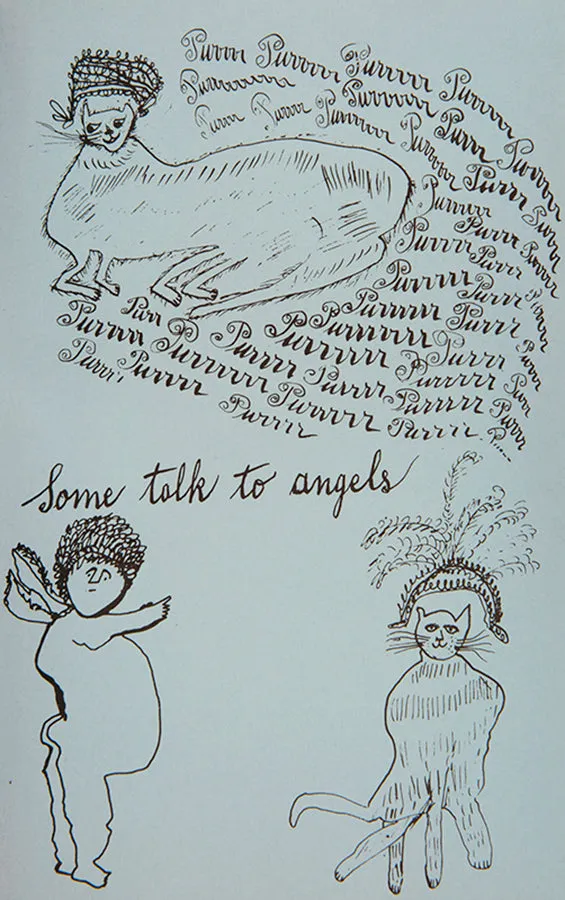 Purrrr Purrrrr Purrrrrr Purrrrrr
Purrrrrrrrr Purrrrrr Purrr Purrrrr
Purrr Purrrr Purrrrrr Purrrrr Purrr Purrr
Purrrrr Purrr Purrrr
Purrrrr Purrr
Purrrrrr Purrr
Purr Purrrrrr Purrrr
Purrrrr Purrrrrrr Purrrrr Purrrrrrr Purrrrrrrr Purrrr
Purrrr Purrrrrr Purrrrr Purrrrr Purr
Purrrrrrr Purrrrr Purrr
Purrrrr Purrrr
Some talk to angels